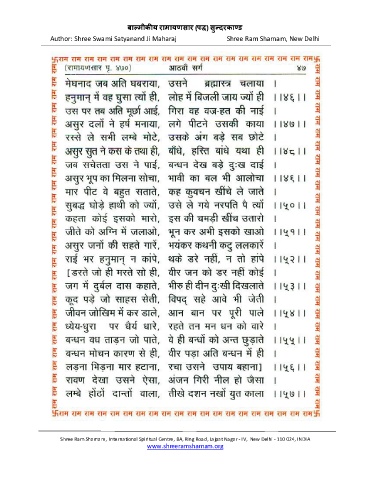 बाल्मीकीय रामायणसार (पद्य) सुन्दरकाण्ड
Author: Shree Swami Satyanand Ji Maharaj Shree Ram Sharnam, New Delhi
राम राम राम राम राम राम राम राम राम राम राम राम राम राम राम राम राम राम राम राम राम
(रामायणसार पृ. ४७०) आठवीं सर्ग ४७
मेघनाद जब अति घबराया, उसने ब्रह्मास्त्र चलाया ।
हनुमान् में वह घुसा त्यों ही, लोह में बिजली जाय ज्यों ही ।।४६।।
उस पर तब अति मूर्छा आई, गिरा वह वज्र-हत की नाई ।
असुर दलों ने हर्ष मनाया, लगे पीटने उसकी काया ।।४७।।
रस्से ले सभी लम्बे मोटे, उसके अंग बड़े सब छोटे ।
असुर सुत ने कस के तथा ही, बाँधे, हस्ति बांधे यथा ही ।।४८।।
जब सचेतता उस ने पाई, बन्धन देख बड़े दुःख दाई ।
असुर भूप का मिलना सोचा, भावी का बल भी आलोचा ।।४९।।
मार पीट वे बहुत सताते, कह कुवचन खींचे ले जाते ।
सुबद्ध घोड़े हाथी को ज्यों, उसे ले गये नरपति पै त्यों ।।५०।।
कहता कोई इसको मारो, इस की चमड़ी खींच उतारो ।
जीते को अग्नि में जलाओ, भून कर अभी इसको खाओ ।।५१।।
असुर जनों की सहते गारें, भयंकर कथनी कटु ललकारें ।
राई भर हनुमान् न कांपे, थके डरे नहीं, न तो हांपे ।।५२।।
[डरते जो ही मरते सो ही, वीर जन को डर नहीं कोई ।
जग में दुर्बल दास कहाते, भीरु ही दीन दुःखी दिखलाते ।।५३।।
कूद पड़े जो साहस सेती, विपद् सहे आवे भी जेती ।
जीवन जोखिम में कर डाले, आन बान पर पूरी पाले ।।५४।।
ध्येय-धुरा पर धैर्य धारे, रहते तन मन धन को वारे ।
बन्धन वध ताड़न जो पाते, वे ही बन्धों को अन्त छुड़ाते ।।५५।।
बन्धन मोचन कारण से ही, वीर पड़ा अति बन्धन में ही ।
लड़ना भिड़ना मार हटाना, रचा उसने उपाय बहाना] ।।५६।।
रावण देखा उसने ऐसा, अंजन गिरी नील हो जैसा ।
लम्बे होंठों दान्तों वाला, तीखे दशन नखों युत काला ।।५७।।
राम राम राम राम राम राम राम राम राम राम राम राम राम राम राम राम राम राम राम राम राम
Shree Ram Sharnam, International Spiritual Centre, 8A, Ring Road, Lajpat Nagar - IV, New Delhi - 110 024, INDIA
www.shreeramsharnam.org